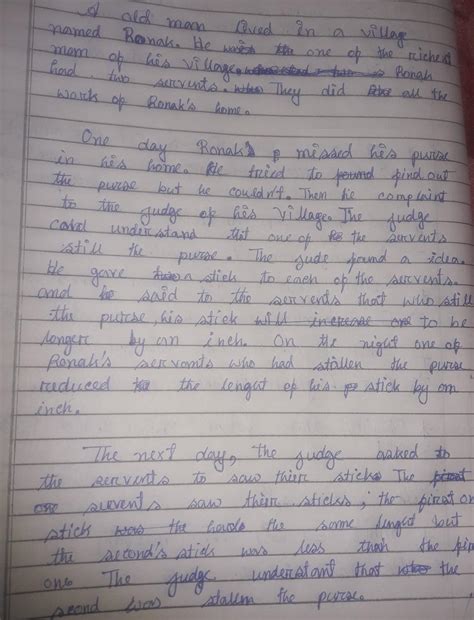 A old man lived in a village
named Ronak. He was the one of the richest
man of his village. Ronak
had two servents. They did all the
work of Ronak's home.
One day Ronak's missed his purse
in his home. He tried to find out
the purse but he couldn't. Then he complaint
to the judge of his village. The judge
could understand that one of the servents
still the purse. The jude found a idea.
He gave a stick to each of the servents.
and he said to the servents that who still
the purse, his stick will increase to be
longer by an inch. On the night one of
Ronak's servants who had stallen the purse
reduced the lengut of his stick by an
inch.
The next day, the judge asked to
the servents to saw thirr sticks The first
one servents saw thirr sticks, the first on
stick was the have the same lenght but
the second's stick was less than the fir
one The judge understant that
second was stallen the purse.